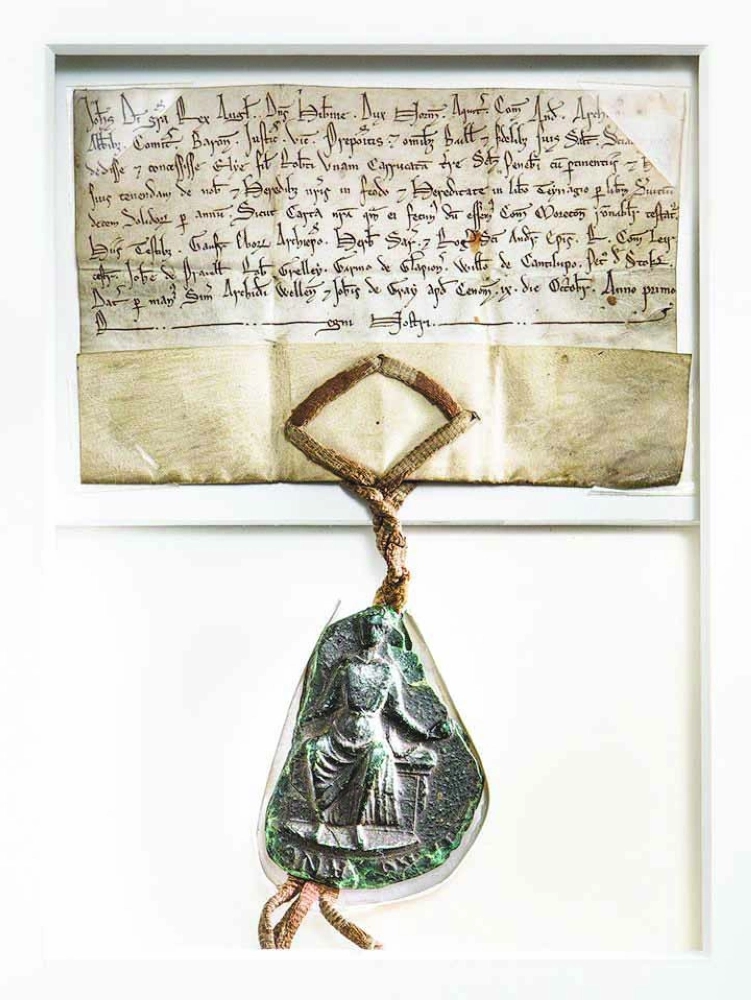 Johs Di gra Rex Angl. Dns Hibnie. Dux Norm. Aquit. Com And. Arch
Abbibz. Comit. Baron. Justic. vic. Prepositis. omibz Baill fidelibz suis Salt.
dedisse concessisse Elye fil Robti Unam Carrucata tre cu ptinentiis
suis tenendam de nob Heredibz nris in feodo Hereditate in libo p libm Suiciu
decem Solidor p annu. Sicut Carta nra qm ei fecim du essem Com Moreton ronabilr testat.
Hiis Testibz. Eborr Archiepo. Herb Sar. Rog Sci Andr Epis. R. Com Leir
Johe de Rob Grelley. Warino de Glapion. Willo de Cantilupo. Pet d Stok.
Dat p man Sim Archidi Wellen Johis de Gray apd Cenom. ix. die Octobr. Anno primo
R egni Nostri.